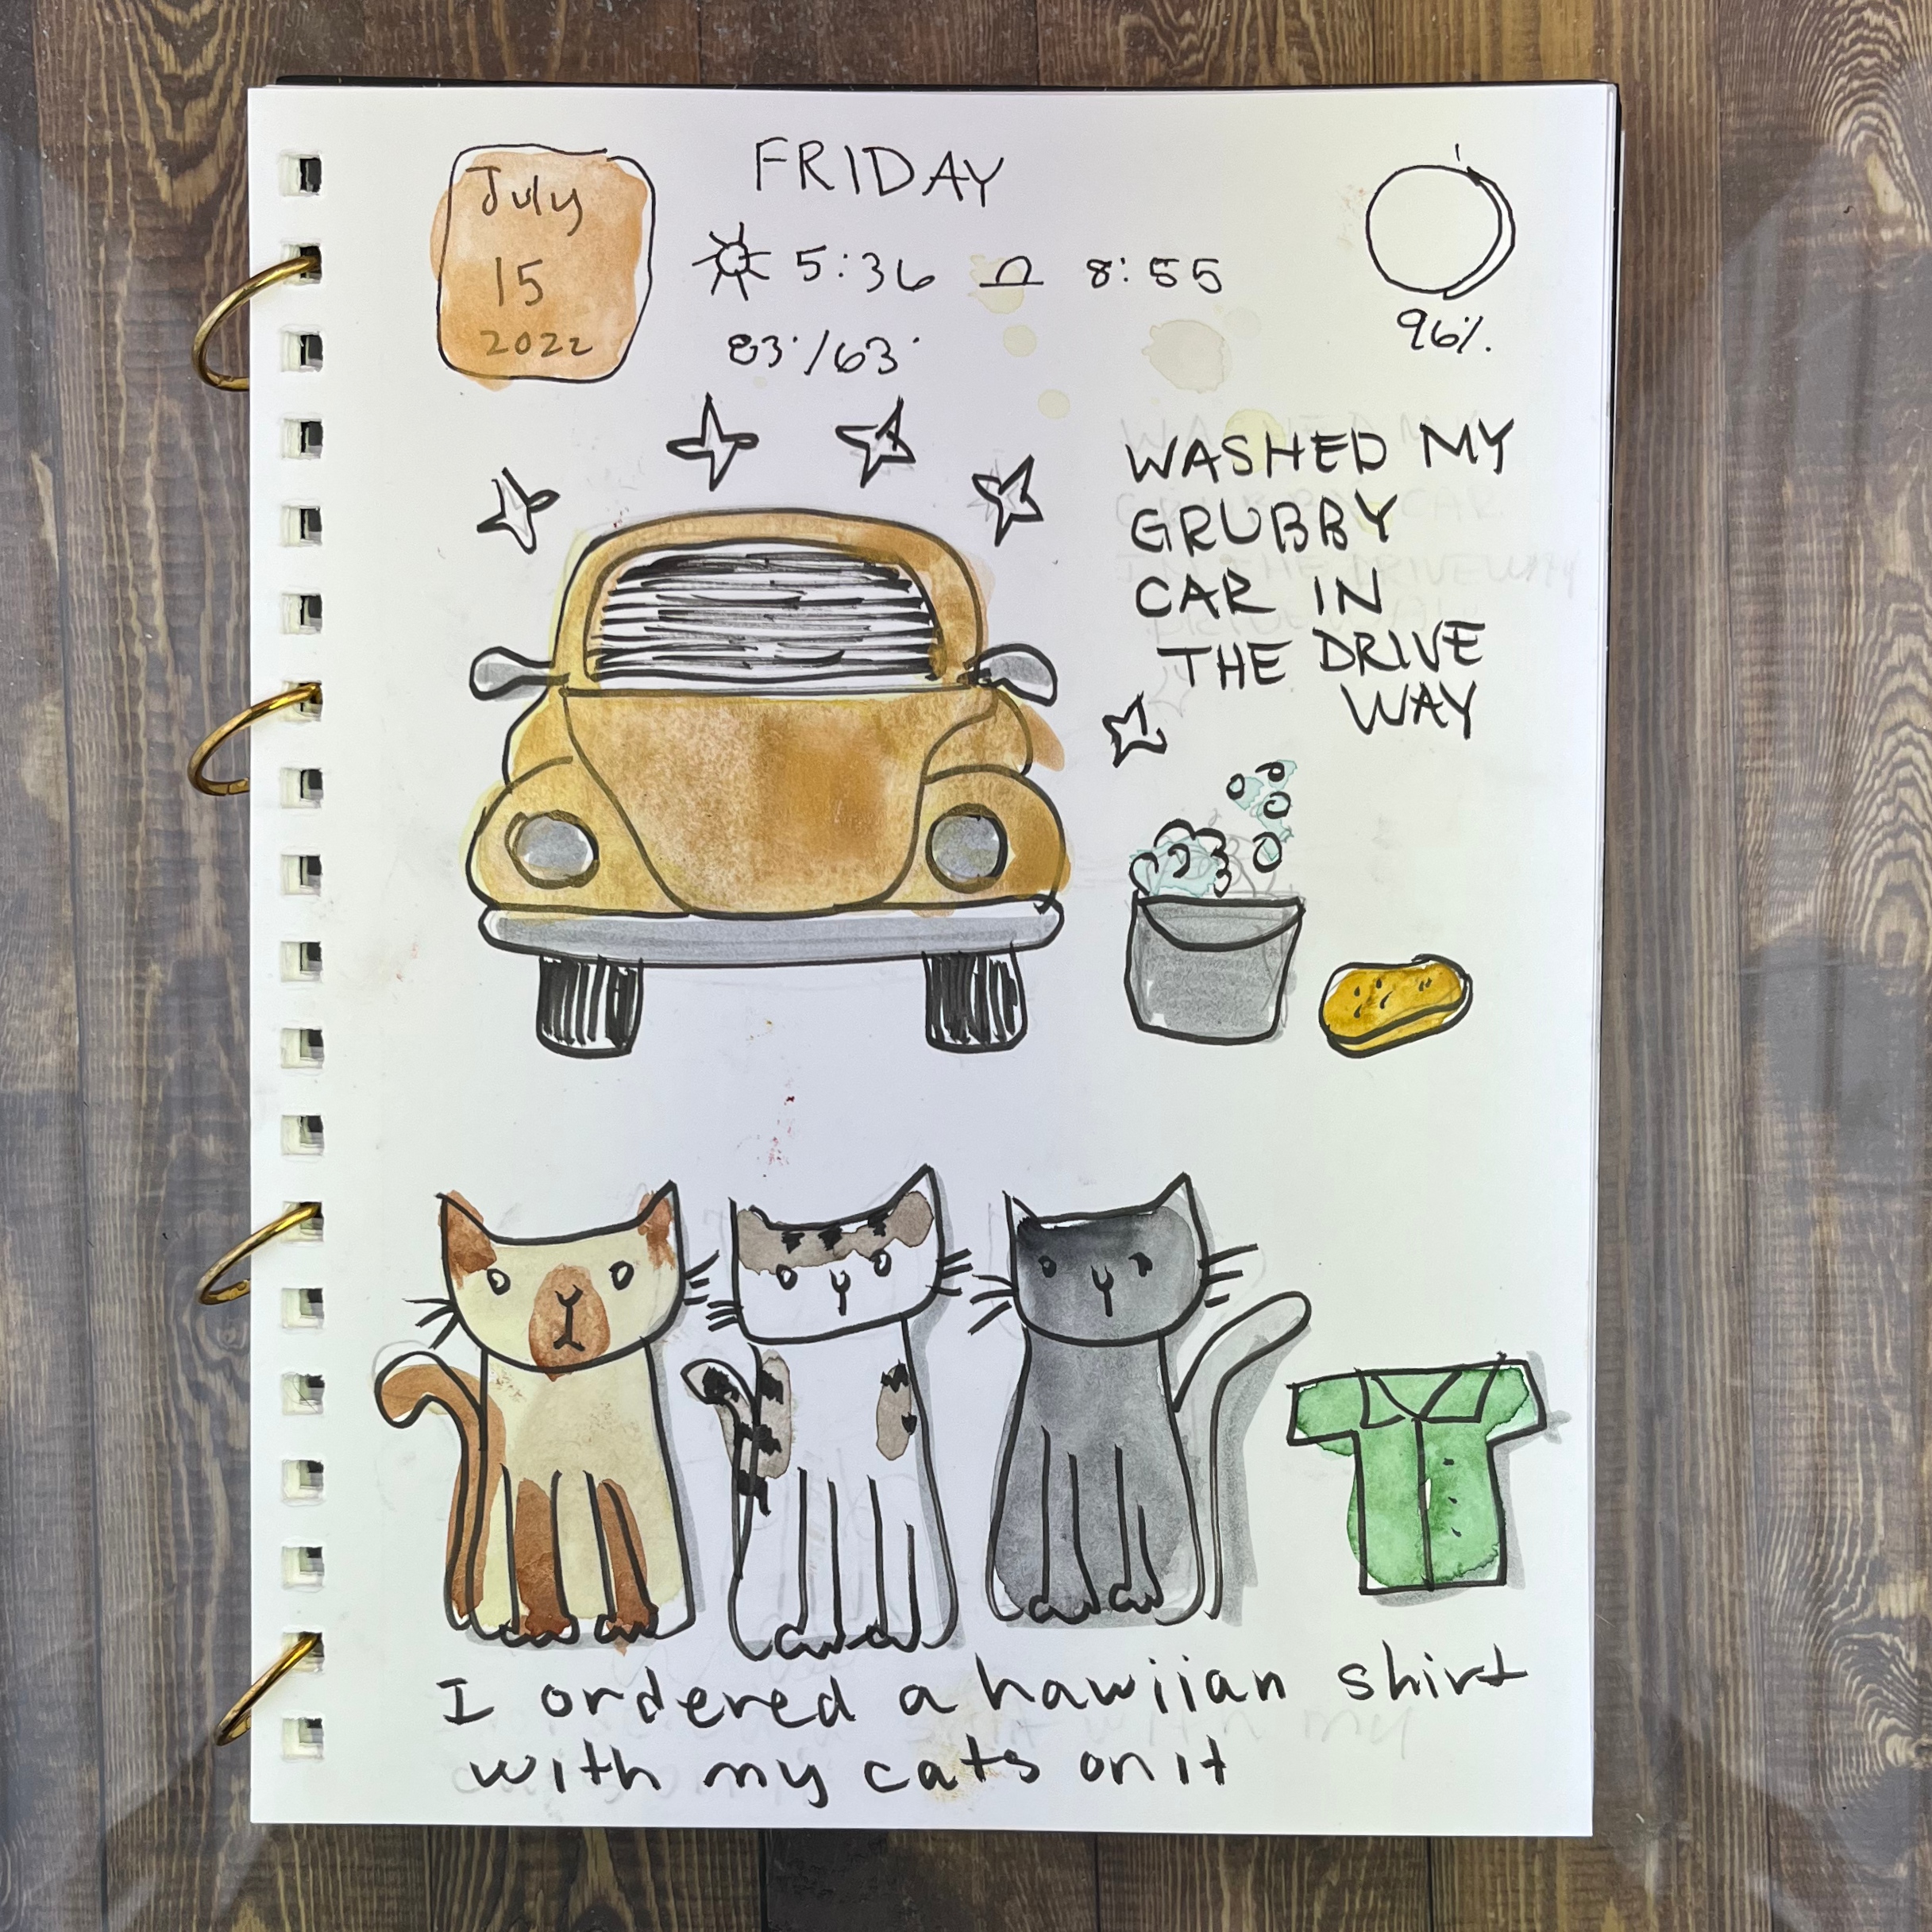 July
15
2022
FRIDAY
5:36 8:55
83°/63°
96%.
WASHED MY
GRUBBY
CAR IN
THE DRIVE
WAY
I ordered a hawiian shirt
with my cats on it